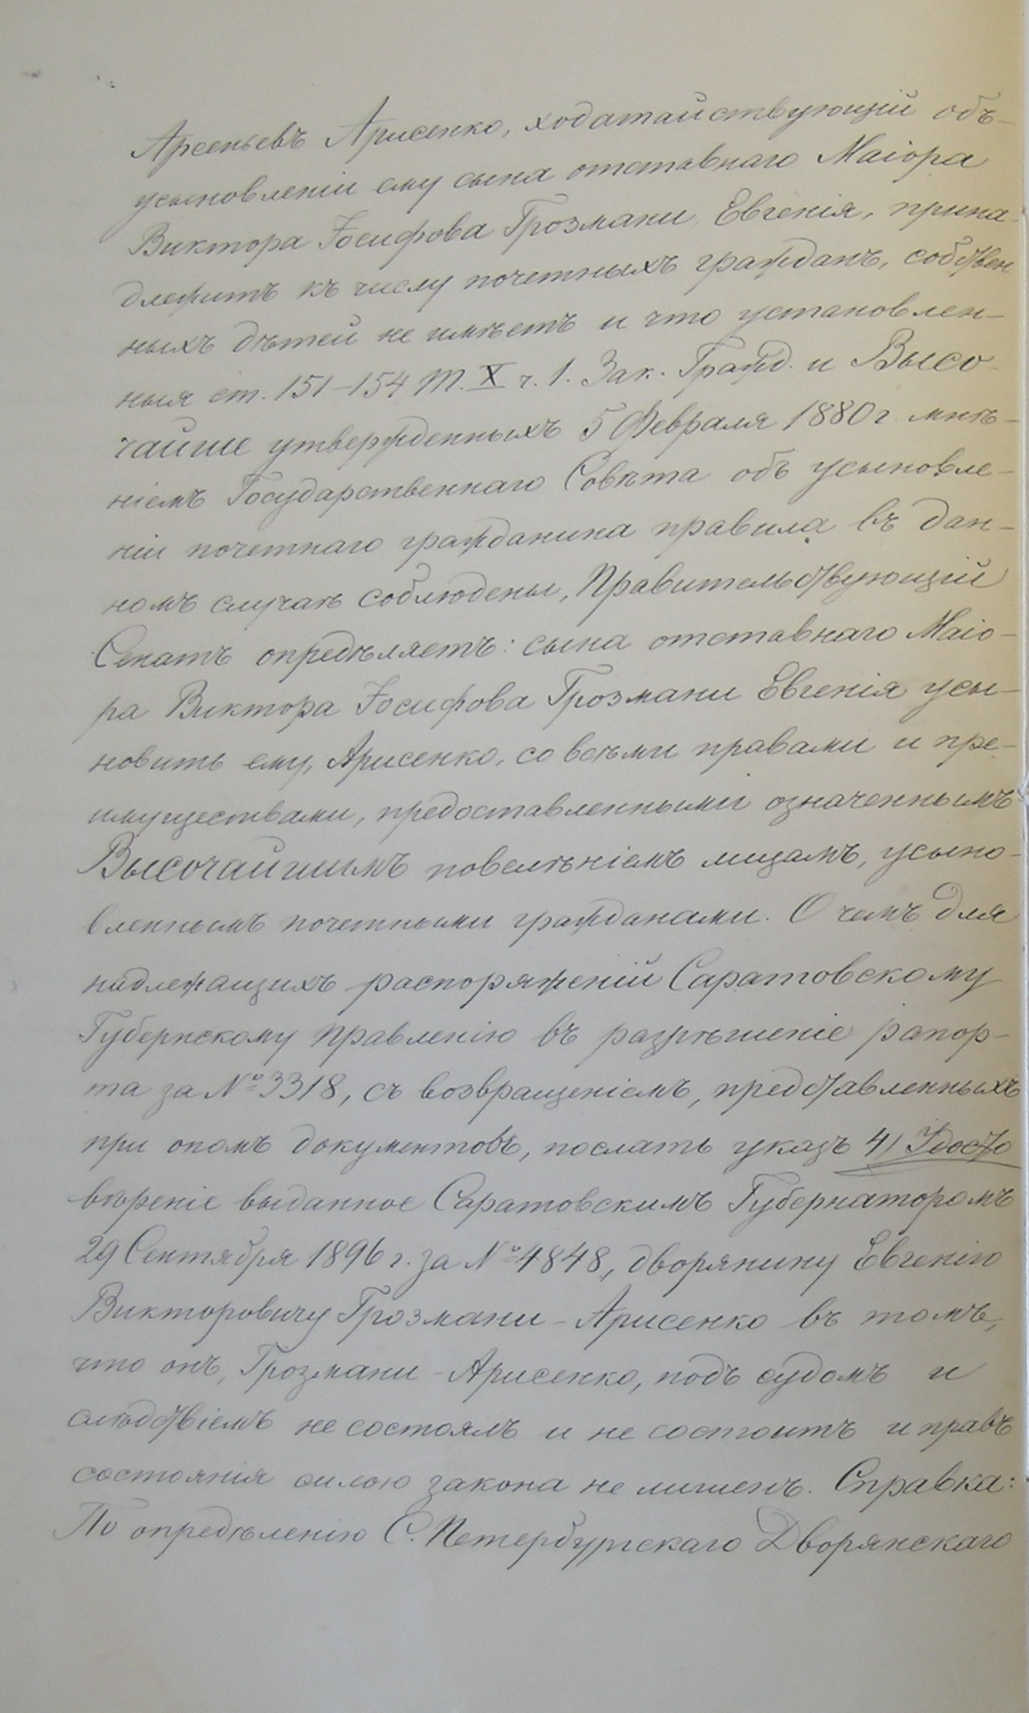 Арсеньевъ Арисенко, ходатайствующій объ
усыновленіи ему сына отставнаго Маіора
Виктора Іосифова Грозмани Евгенія, прина-
длежитъ къ числу почетныхъ гражданъ, собствен
ныхъ дѣтей не имѣетъ и что установлен-
ныя ст. 151–154 Т. X ч. 1. Зак. Гражд. и Высо-
чайше утвержденныхъ 5 Февраля 1880 г. мнѣ-
ніемъ Государственнаго Совѣта объ усыновле-
ніи почетнаго гражданина правила въ дан-
номъ случаѣ соблюдены, Правительствующій
Сенатъ опредѣляетъ: сына отставнаго Маіо-
ра Виктора Іосифова Грозмани Евгенія усы-
новить ему, Арисенко, со всѣми правами и пре-
имуществами, предоставленными означеннымъ
Высочайшимъ повелѣніемъ лицамъ, усыно-
вленнымъ почетными гражданами. О чемъ для
надлежащихъ распоряженій Саратовскому
Губернскому Правленію въ разрѣшеніе рапор-
та за № 3318, съ возвращеніемъ, представленныхъ
при ономъ документовъ, послать указъ 4) Удосто
вѣреніе выданное Саратовскимъ Губернаторомъ
29 Сентября 1896 г. за № 4848, дворянину Евгенію
Викторовичу Грозмани-Арисенко въ томъ,
что онъ, Грозмани-Арисенко, подъ судомъ и
слѣдствіемъ не состоялъ и не состоитъ и правъ
состоянія силою закона не лишенъ. Справка:
По опредѣленію С. Петербургскаго Дворянскаго